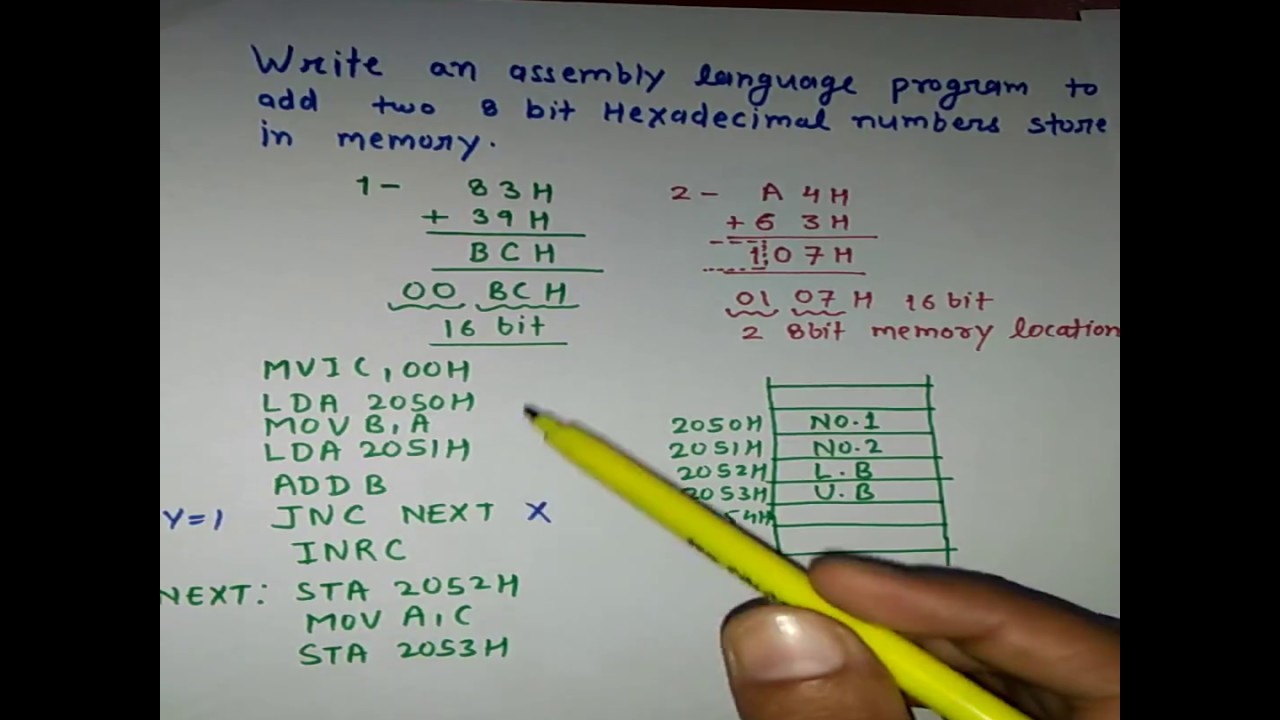 Write an assembly language program to
add two 8 bit Hexadecimal numbers store
in memory.
1 - 83H
+ 39H
BCH
00 BCH
16 bit
2 - A4H
+ 63H
107H
01 07H 16 bit
2 8bit memory location
MVI C, 00H
LDA 2050H
MOV B, A
LDA 2051H
ADD B
Y=1 JNC NEXT X
INR C
NEXT: STA 2052H
MOV A, C
STA 2053H
2050H NO.1
2051H NO.2
2052H L.B
2053H U.B
54H